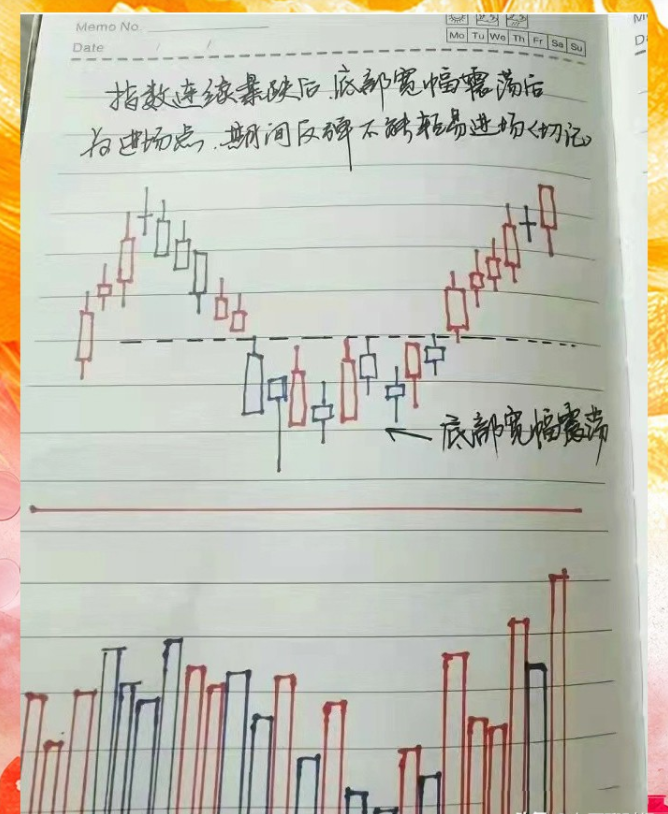 Memo No.
Date / /
Mo Tu We Th Fr Sa Su
指数连续暴跌后.底部宽幅震荡后
为进场点.期间反弹不能轻易进场<切记>
底部宽幅震荡